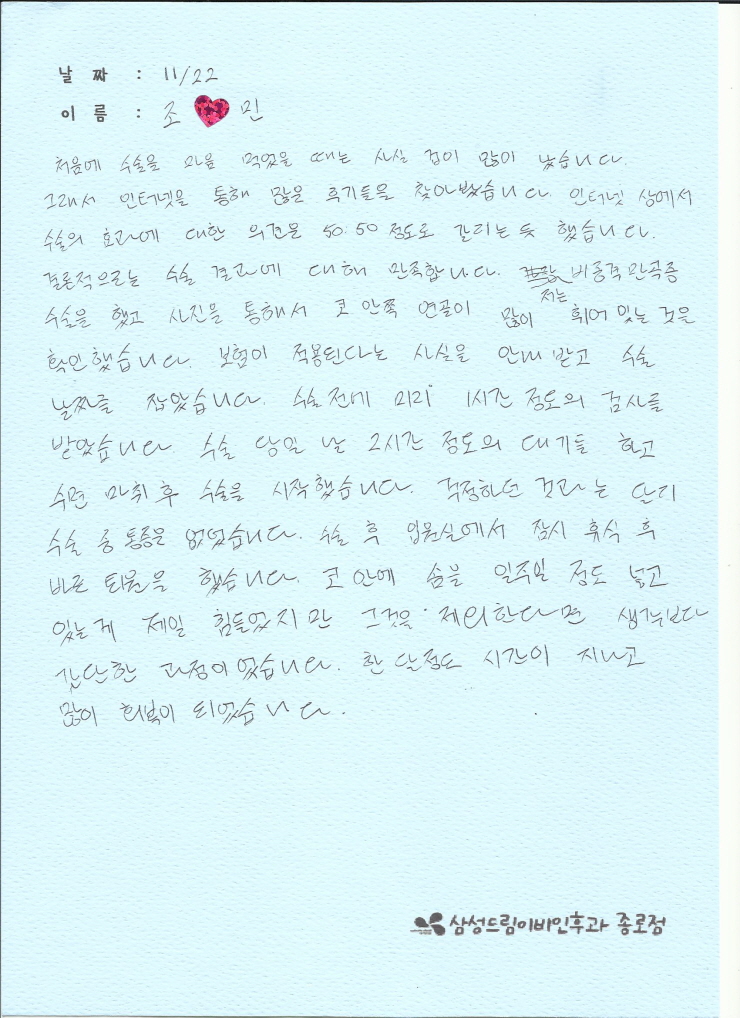 날 짜 : 11/22
이 름 : 조 민
처음에 수술을 마음 먹었을 때는 사실 겁이 많이 났습니다.
그래서 인터넷을 통해 많은 후기들을 찾아봤습니다. 인터넷 상에서
수술의 효과에 대한 의견은 50:50 정도로 갈리는 듯 했습니다.
결론적으로는 수술 결과에 대해 만족합니다. 저는 비중격만곡증
수술을 했고 사진을 통해서 코 안쪽 연골이 많이 휘어 있는 것을
확인했습니다. 보험이 적용된다는 사실을 안내 받고 수술
날짜를 잡았습니다. 수술 전에 미리 1시간 정도의 검사를
받았습니다. 수술 당일 날 2시간 정도의 대기를 하고
수면 마취 후 수술을 시작했습니다. 걱정하던 것과는 달리
수술 중 통증은 없었습니다. 수술 후 입원실에서 잠시 휴식 후
바로 퇴원을 했습니다. 코 안에 솜을 일주일 정도 넣고
있는게 제일 힘들었지만 그것을 제외한다면 생각보다
간단한 과정이었습니다. 한 달정도 시간이 지나고
많이 회복이 되었습니다.
삼성드림이비인후과 종로점